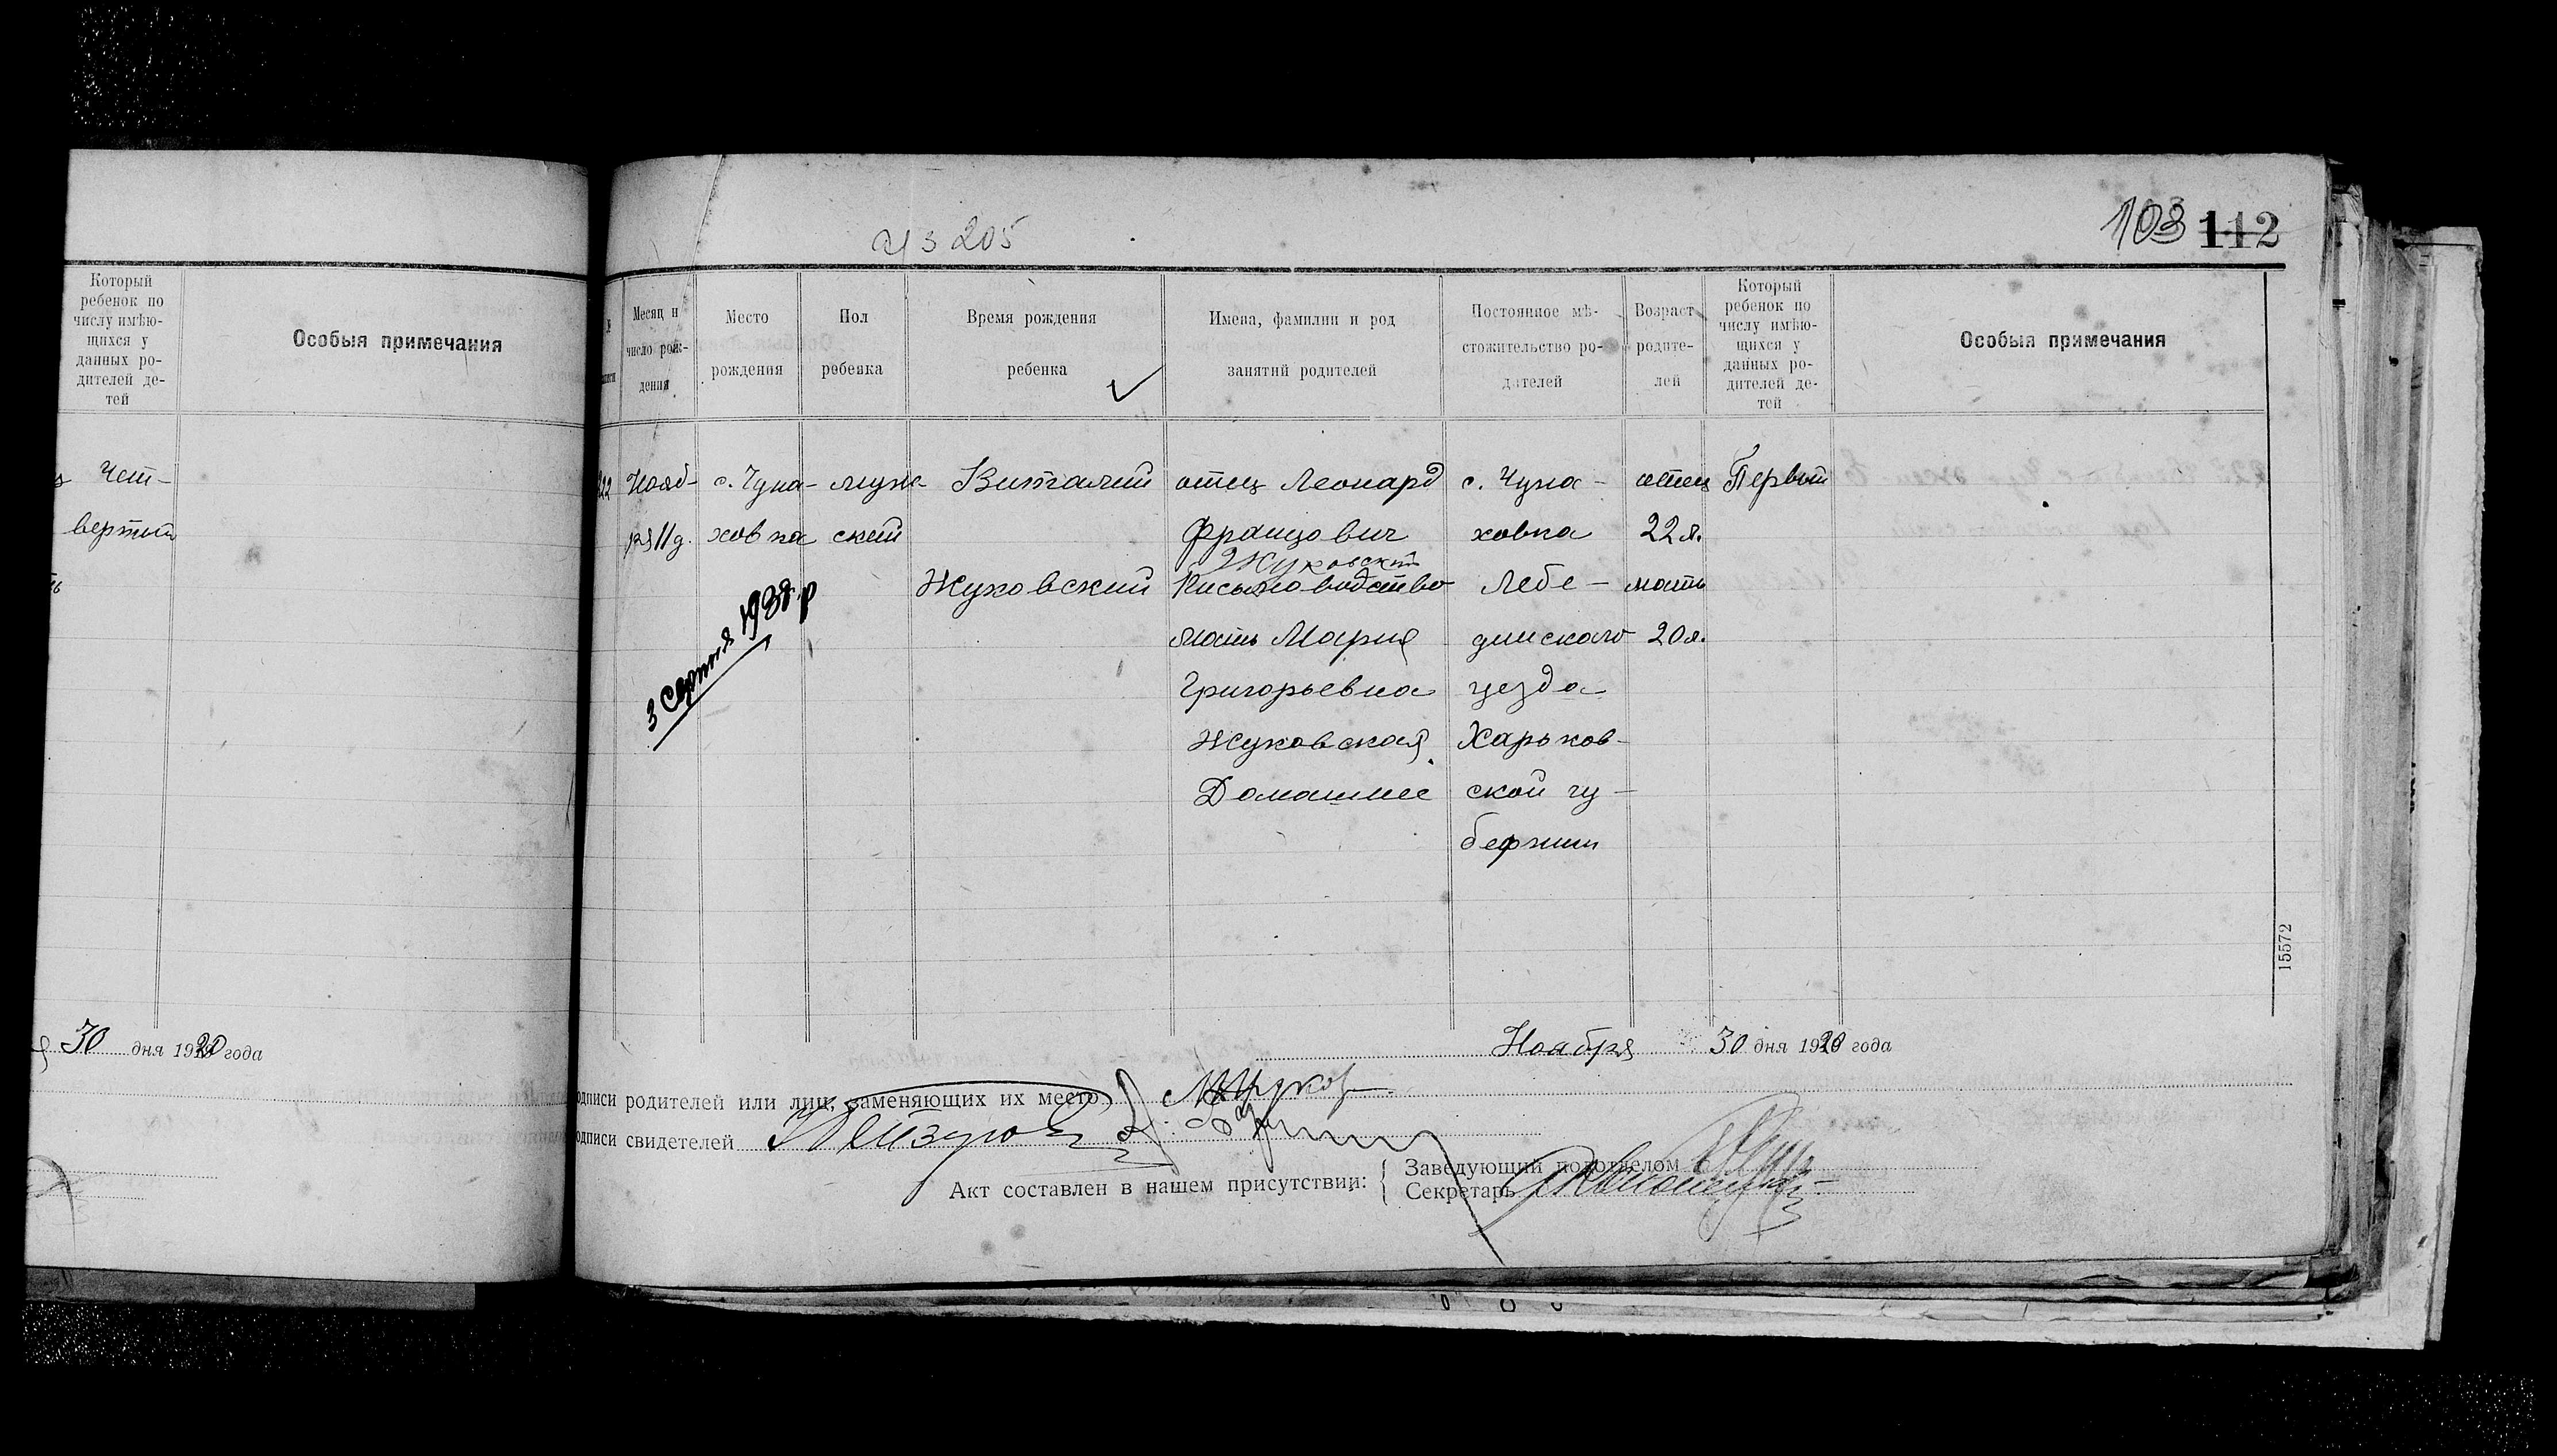 Который
ребенок по
числу имѣю-
щихся у
данных ро-
дителей де-
тей
Особыя примечания
Чет-
вертый
30 дня 1920 года
Из 205
103 112
Месяц и
число рож-
дения
Место
рождения
Пол
ребенка
Время рождения
ребенка
Имена, фамилии и род
занятий родителей
Постоянное мѣ-
стожительство ро-
дителей
Возраст
родите-
лей
Который
ребенок по
числу имѣю-
щихся у
данных ро-
дителей де-
тей
Особыя примечания
Нояб-
ря 11 д.
с. Чупа-
ховка
муж-
ской
Виталий
Жуковский
отец Леонард
Францович
Жуковский
Письмоводство
мать Мария
Григорьевна
Жуковская
Домашнее
с. Чупа-
ховка
Лебе-
динского
уезда
Харьков-
ской гу-
бернии
отец
22 л.
мать
20 л.
Первый
3 Серпня 1938 р
15572
Ноября 30 дня 1920 года
одписи родителей или лиц, заменяющих их место
одписи свидетелей
Акт составлен в нашем присутствии:
Заведующий подотделом
Секретарь